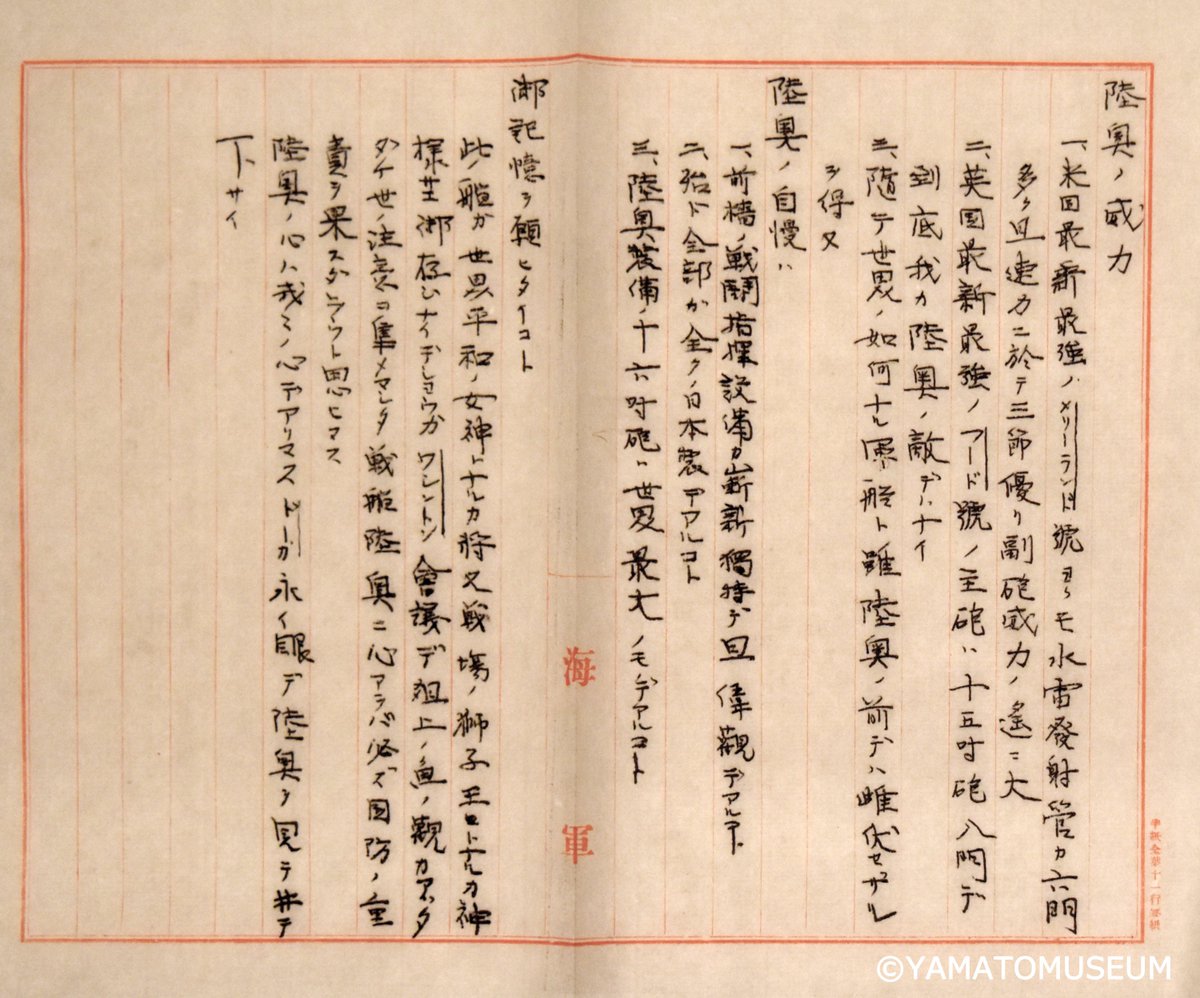 陸奥ノ威力
一、米国最新最強ノメリーランド號ヨリモ水雷發射管カ六門
多ク且速力ニ於テ三節優リ副砲威力ノ遙ニ大
二、英国最新最強ノフード號ノ主砲ハ十五吋砲八門デ
到底我カ陸奥ノ敵デハナイ
三、隨テ世界ノ如何ナル軍艦ト雖陸奥ノ前デハ雌伏セザル
ヲ得ヌ
陸奥ノ自慢ハ
一、前檣ノ戦闘指揮設備カ嶄新獨特デ且偉觀デアルコト
二、殆ド全部が全クノ日本製デアルコト
三、陸奥装備ノ十六吋砲ハ世界最大ノモノデアルコト
御記憶ヲ願ヒタイコト
此ノ艦ガ世界平和ノ女神トナルカ将又戦場ノ獅子王トナルカ神
様丈御存ジナイデショウガワシントン會議デ俎上ノ魚ノ觀カアッタ
ダケ世ノ注意ヲ集メマシタ戦艦陸奥ニ心アラバ必ズ国防ノ重
責ヲ果スダラウト思ヒマス
陸奥ノ心ハ我々ノ心デアリマスドーカ永イ眼デ陸奥ヲ見テ居テ
下サイ
海軍
©YAMATOMUSEUM